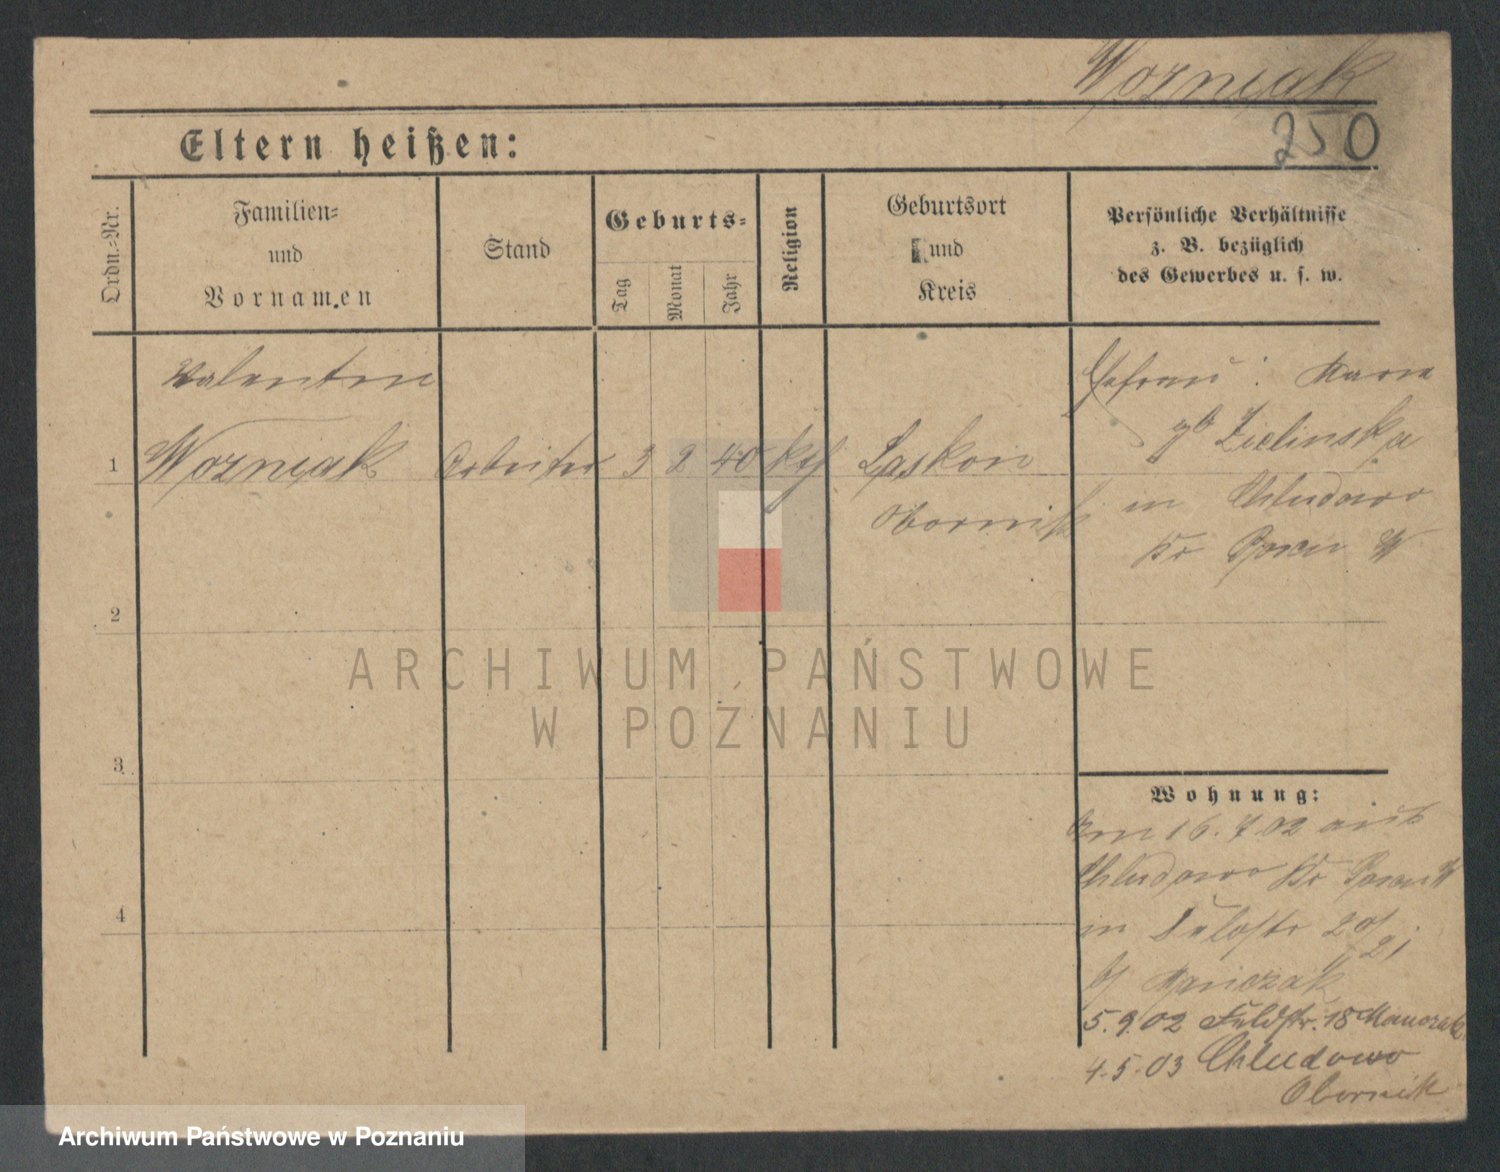 Wozniak
250
Eltern heißen:
Ordn.=Nr.
Familien=
und
Vornamen
Stand
Geburts=
Tag
Monat
Jahr
Religion
Geburtsort
und
Kreis
Persönliche Verhältnisse
z. B. bezüglich
des Gewerbes u. s. w.
Valentin
1 Wozniak Arbeiter 3 2 40 kth
Obornik
Ehefrau: Maria
gb Zielinska
in Chludowo
Kr Posen W
2
3
4
Wohnung:
Am 16.7.02 aus
Chludowo Kr Posen W
in 20/21
b/
5.9.02 Feldstr. 18 Manczak
4.5.03 Chludowo
Obornik
ARCHIWUM PAŃSTWOWE
W POZNANIU
Archiwum Państwowe w Poznaniu